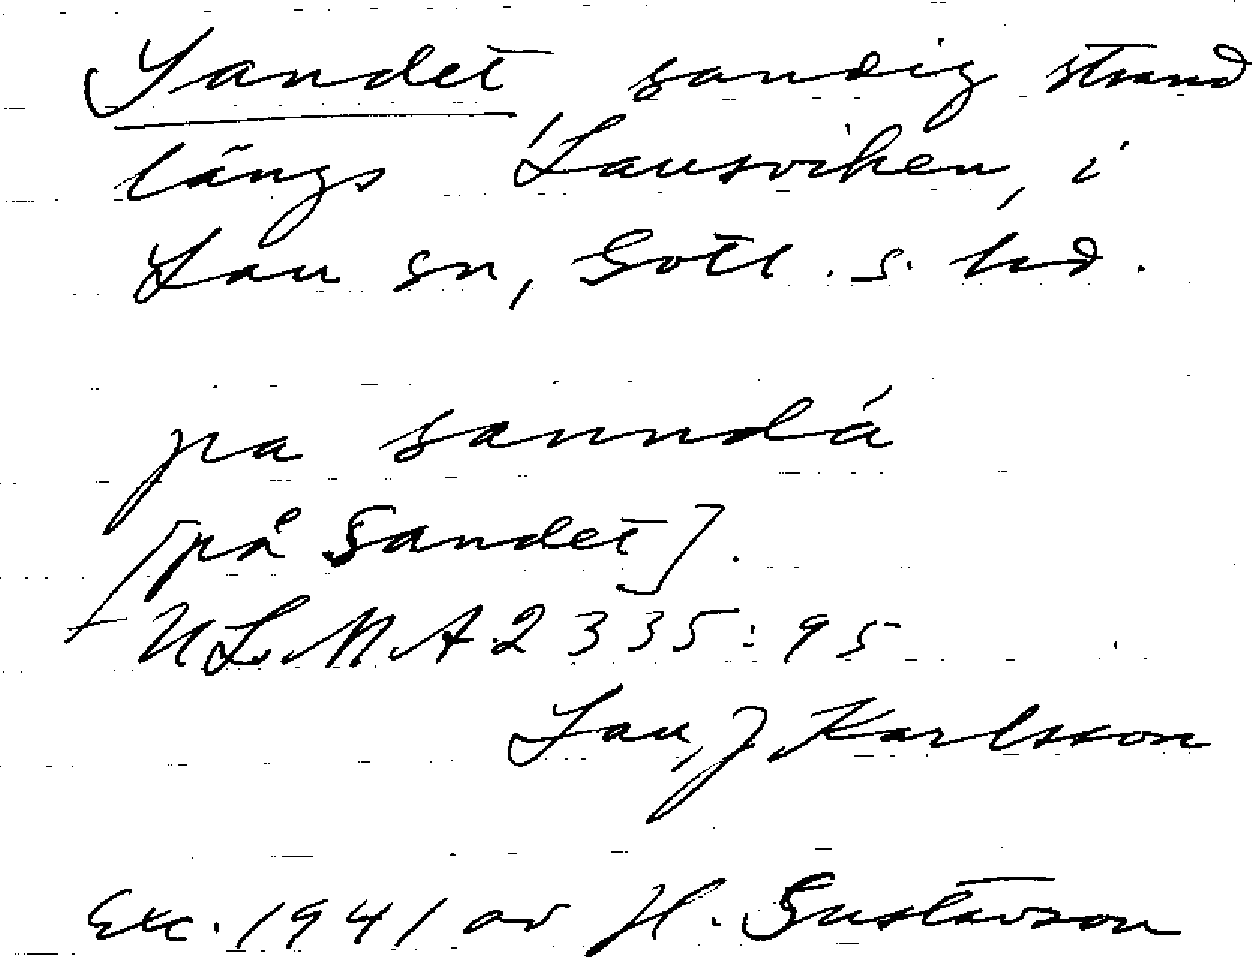 Sandet, sandig strand
längs Lausviken, i
Lau sn, Gotl. s. hd.
pa sanndá
[på Sandet].
ULMA 2335:95
Lau, J Karlsson
Exc. 1941 av H. Gustavson